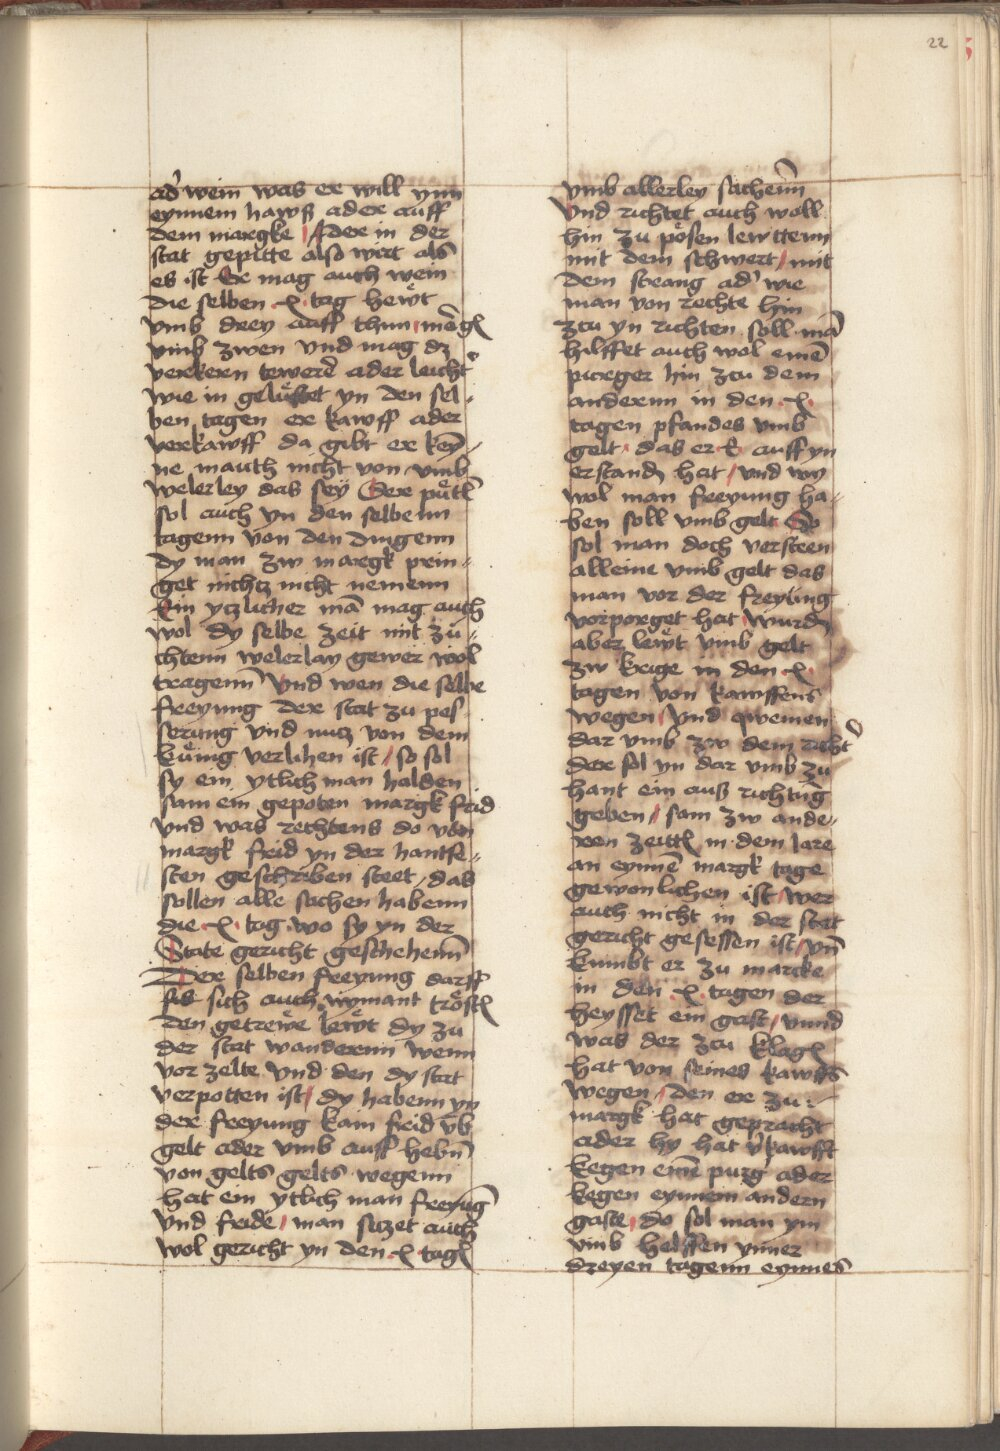 22
ad' wein was er will ynn
eynnem hawß ader auff
dem margke Ader in der
stat gepitte also wirt als
es ist Er mag auch wein
die selben .x. tag hewͤt
vmb drey auff thun morgē
vmb zwen vnd mag dz
verkern tewerd ader leicht'
wie in gelustet yn den sel-
ben tagen er kawff ader
verkawff da gibt er key-
ne mauth nicht von vmb
welerley das sey Der putl
sol auch yn den selbenn
tagenn von den dingenn
dy man zw margk prin-
get nichtz nicht nemenn
Ein yczlicher mā mag auch
wol dy selbe zeit mit zu-
chtenn welerlay gewer wol
tragenn Vnd wen die selbe
freyung der stat zu pes-
serung vnd nutz von dem
kunig verlihen ist so sol
sy ein ytlich man halden
sam ein gepoten margk frid
vnd was rechtens do von
margk frid yn der hantfe-
sten geschriben steet das
sollen alle sachen habenn
die .x. tag wo sy yn der
State gericht geschehenn
Der selben freyung darff
sich auch nymant trosten
den getrewe lewt dy zu
der stat wandernn wenn
vor zelte vnd den dy stat
verpotten ist dy habenn yn
der freyung kain frid vb
gelt ader vmb auff hebn
von gelts gelts wegenn
hat ein ytlich man freyūg
vnd fride man siczet auch
wol gericht yn den .x. tagē
vmb allerley sachenn
Vnd richtet auch woll
hin zu posen lewttenn
mit dem schwert mit
dem strang ad' wie
man von rechte hin
zcu yn richten soll mā
hilffet auch wol einē
purger hin zcu dem
andernn in den .x.
tagen pfandes vmb
gelt das er auff yn
erstanden hat vnd wy
wol man freyung ha-
ben soll vmb gelt So
sol man doch versteen
alleine vmb gelt das
man vor der freyung
vorporget hat wurdn
aber lewt vmb gelt
zw krige in den .x.
tagen von kawffens
wegen vnd qwemen
dar vmb zw dem richt
der sol yn dar vmb zu
hant ein auß richtūg
geben sam zw ande-
ren zeittē in dem Jare
an eynnē margk tage
gewonlichen ist wer
auch nicht in der stat
gericht gesessen ist vn̄
kumbt er zu marcke
in den .x. tagen der
heysset ein gast vnnd
was der zcu klagē
hat von seines kawffs
wegen den er zu
margk hat gepracht
ader hy hat v'kawfft
kegen eine purg' ader
kegen eynnem andern
gaste do sol man ym
vmb helffen ynner
dreyen tagenn eynnes